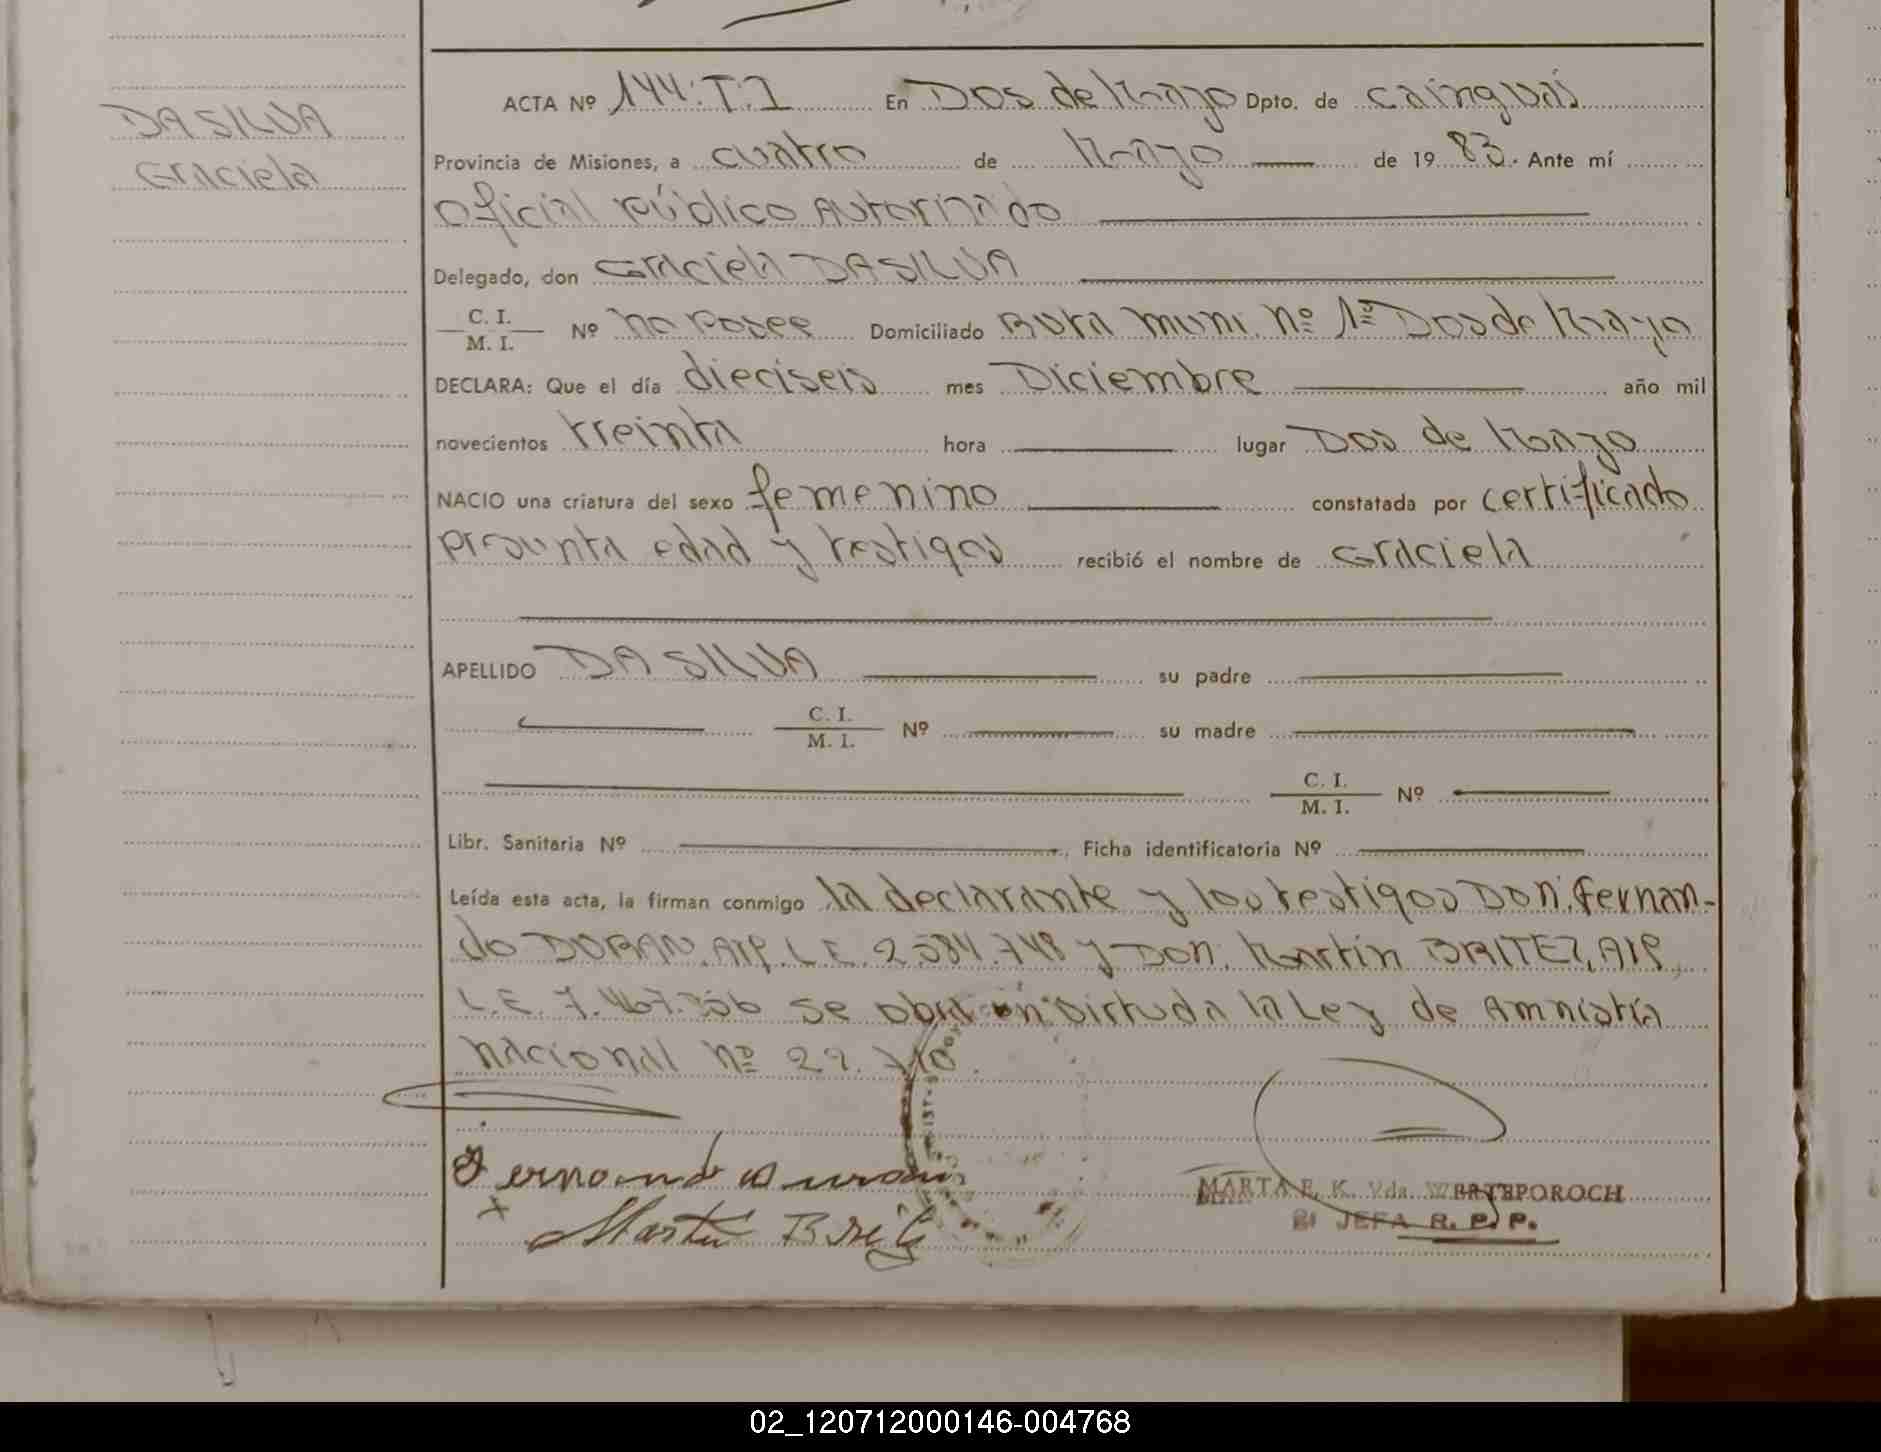 DA SILVA
Graciela
ACTA Nº 144:T:I En Dos de Mayo Dpto. de cainguás
Provincia de Misiones, a cuatro de Mayo de 1983. Ante mí
oficial público Autorizado
Delegado, don Graciela DA SILVA
C. I.
M. I. Nº no posee Domiciliado Ruta muni. Nº 1º Dos de Mayo
DECLARA: Que el día dieciseis mes Diciembre año mil
novecientos treinta hora lugar Dos de Mayo
NACIO una criatura del sexo femenino constatada por certificado
presunta edad y testigos recibió el nombre de Graciela
APELLIDO DA SILVA su padre
C. I.
M. I. Nº su madre
C. I.
M. I. Nº
Libr. Sanitaria Nº Ficha identificatoria Nº
Leída esta acta, la firman conmigo la declarante y los testigos Don. Fernan-
do DURAN, L.E. 2.584.748 y Don. Martín BRITEZ,
L.E. se obra en virtud a la Ley de Amnistía
nacional nº
Fernando Duran
Martín Britez
MARTA E. K. Vda. WERTEPOROCH
JEFA R. P. P.
02_120712000146-004768